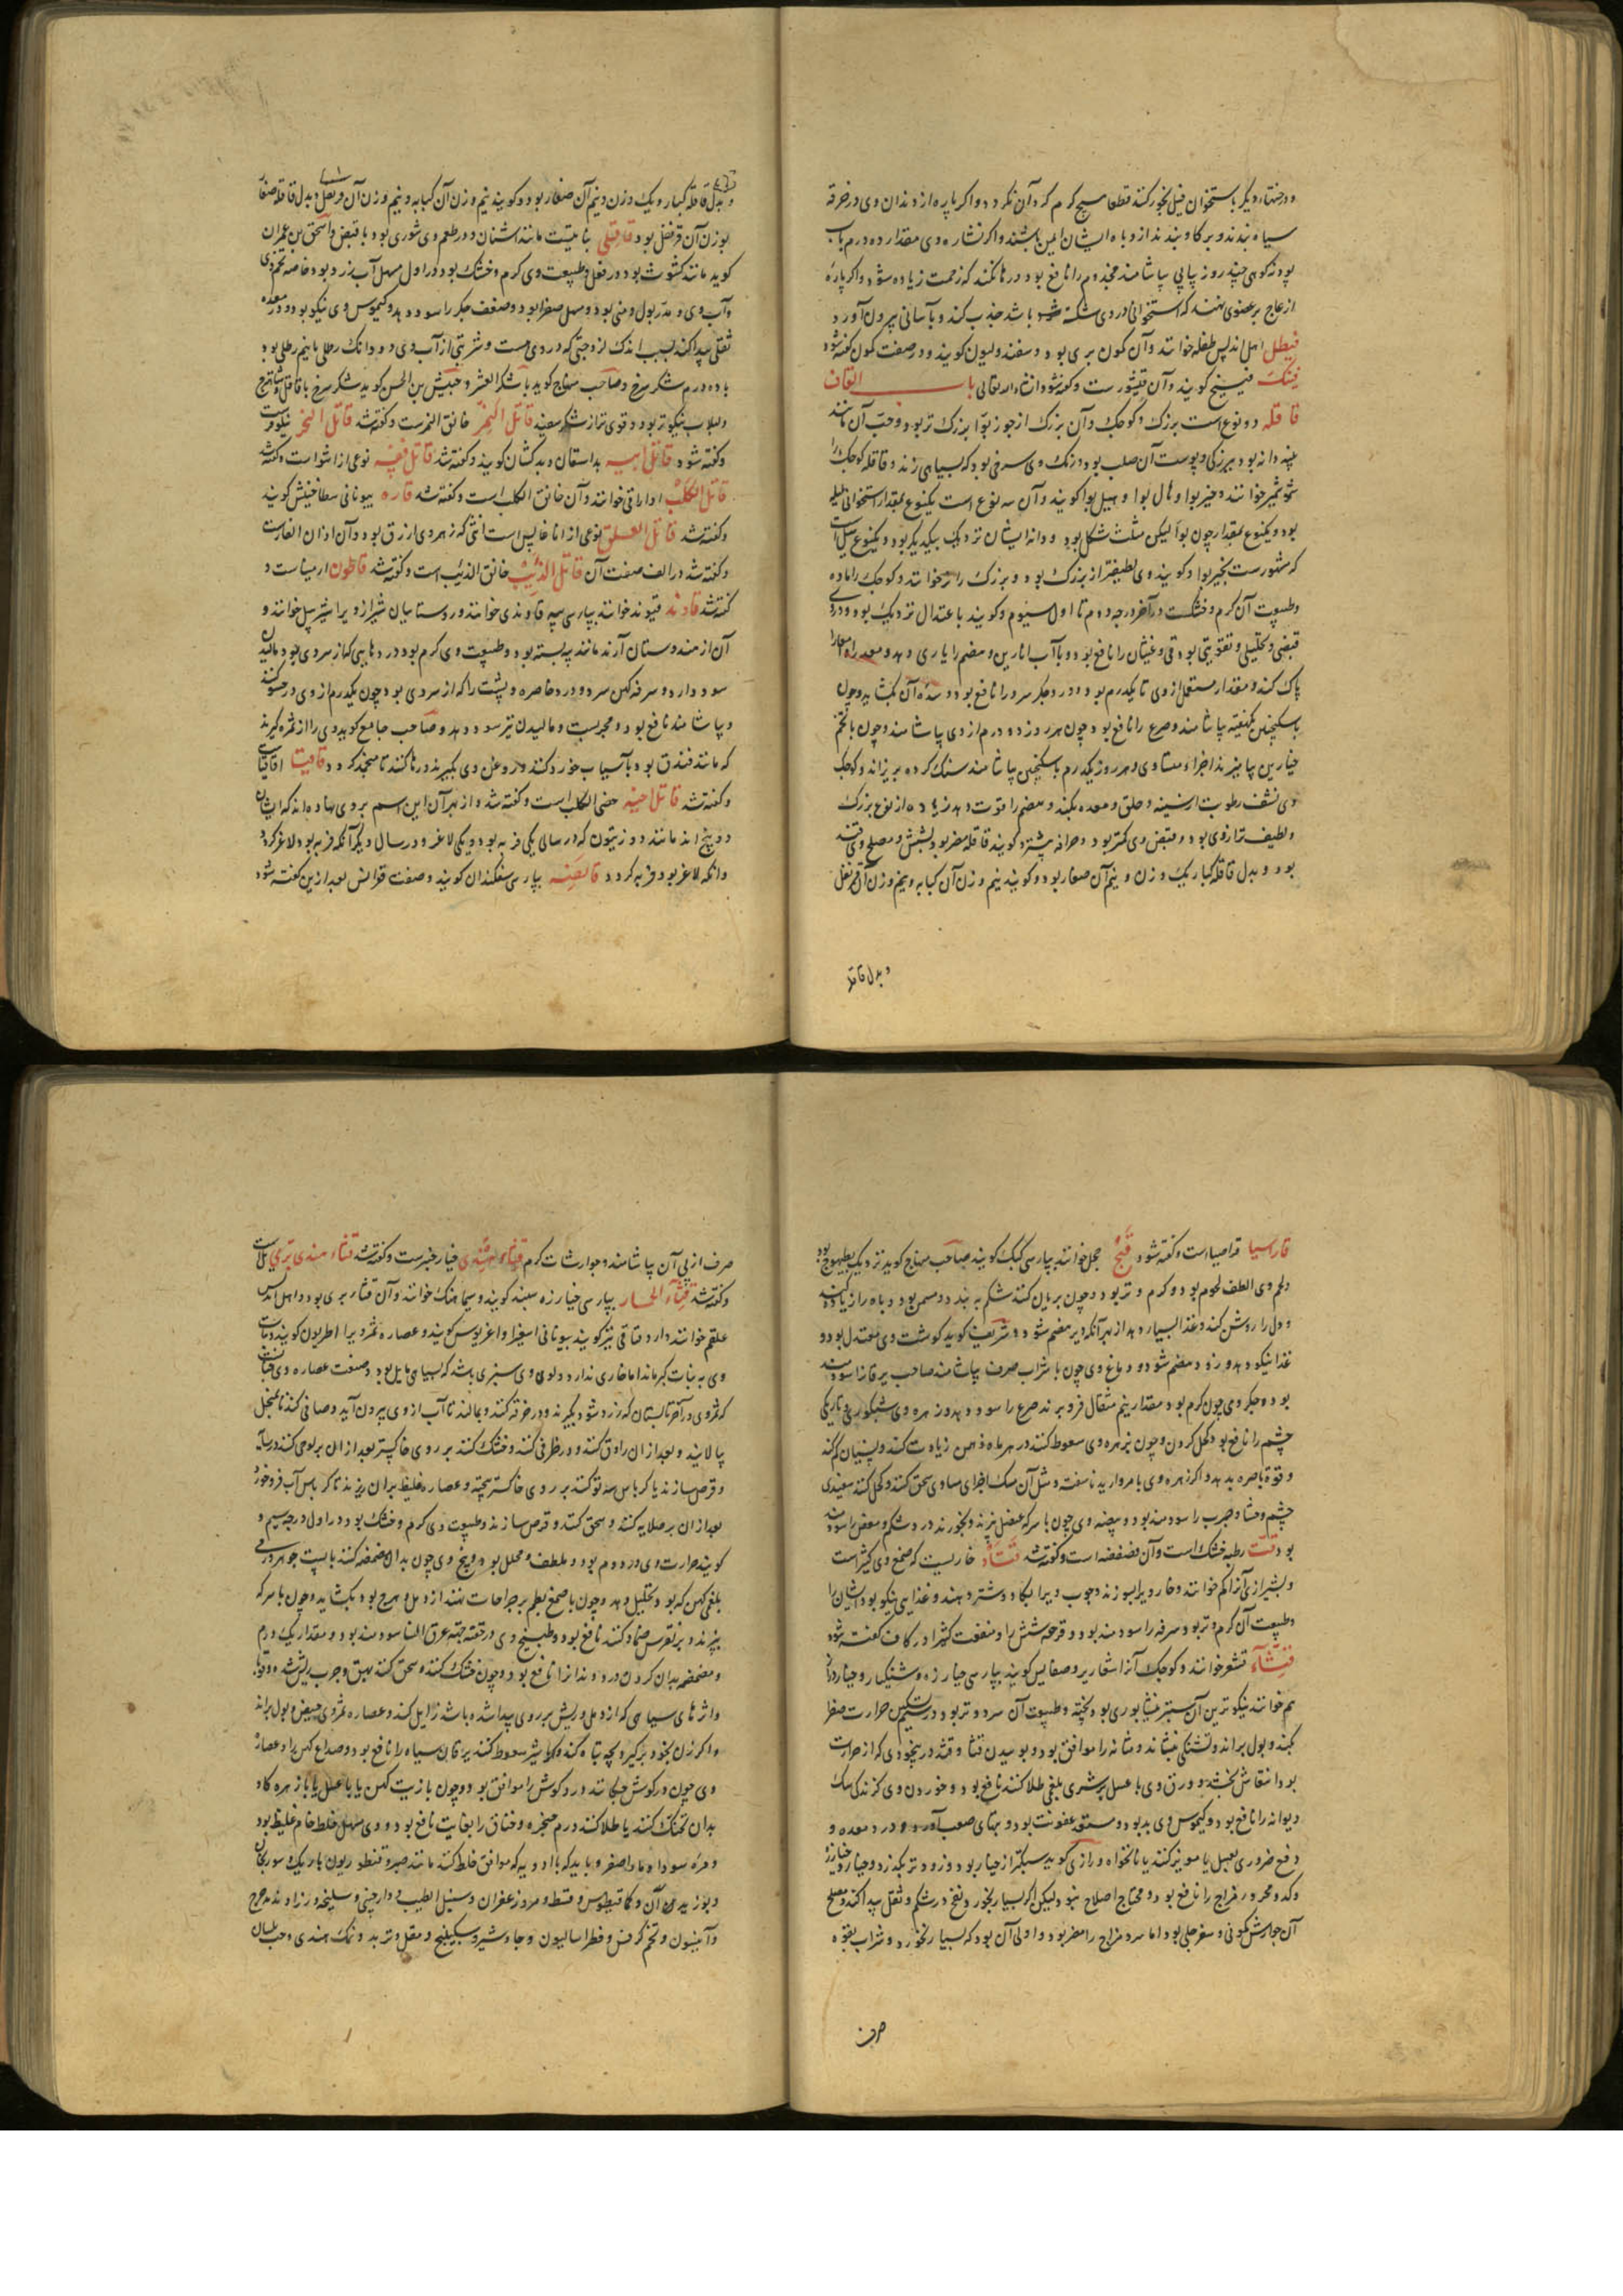 و درختهاء دیگر باستخوان فیل بخور کنند قطعا هیچ کرم کرد آن نگردد و اگر پاره از دندان وی در خرقه
سیاه بندند و بر گاو بندند از وباه ایشان ایمن باشند و اگر نشاره وی مقدار ده درم با آب
پودنه کوهی چند روز پیاپی بیاشامند مجذوم را نافع بود و رها نکنند که زحمت زیاده شود و اگر پاره
از عاج بر عضوی نهند که استخوانی در وی شکسته باشد جذب کند و بآسانی بیرون آورد
فیطل اهل اندلس طفله خوانند و آن کمون بری بود و سفندولیون کویند و در صفت کمون کفته شود
فینک فینج کویند و آن قیشورست و کفته شود انشاء الله تعالی باب القاف
قاقله دو نوع است بزرک و کوچک و آن بزرک از جوز بوا بزرک تر بود و حب آن مانند
پنبه دانه بود ببزرکی و پوست آن صلب بود و رنک وی سرخی بود که بسیاهی زند و قاقله کوچک را
شوشمیر خوانند و خیربوا و هال بوا و هیل بوا کویند و آن سه نوع است یکنوع بمقدار استخوانی هلیله
بود و یکنوع بمقدار چون بوا لیکن مثلث شکل بود و دانه ایشان نزدیک بیکدیکر بود و یکنوع هیل است
که مشهورست بخیربوا و کویند وی لطیفتر از بزرک بود و بزرک را نر خوانند و کوچک را ماده
و طبیعت آن کرم و خشکست در آخر درجه دوم تا اول سیوم و کویند باعتدال نزدیک بود و در وی
قبضی و تحلیلی و تقویتی بود و قی و غثیان را نافع بود و با آب انارین و هضم را یاری دهد و معده را و امعا را
پاک کند و مقدار مستعمل از وی تا یکدرم بود و درد جکر سرد را نافع بود و سده آن بکشاید و چون
با سکنجبین بیاشامند و صرع را نافع بود و چون هر روز دو درم از وی بیاشامند و چون با تخم
خیارین بیامیزند اجزاء متساوی و هر روز یکدرم با سکنجبین بیاشامند سنک کرده بریزاند و کوچک
وی نشف رطوبت از سینه و حلق و معده بکند و هضم را قوت دهد زیاده از نوع بزرک
و لطیف تر از وی بود و قبض وی کمتر بود و حرافه بیشتر و کویند قاقله مضر بود بشش و مصلح وی قند
بود و بدل قاقله کبار یک وزن و نیم آن صغار بود و کویند نیم وزن آن کبابه و نیم وزن آن قرنفل
و بدل قاقله
و بدل قاقله کبار و یک وزن و نیم آن صغار بود و کویند نیم وزن آن کبابه و نیم وزن آن و بدل قاقله صغار
بوزن آن قرنفل بود قاقلی نباتیست مانند اشنان و در طعم وی شوری بود با قبض و اسحق بن عمران
کوید مانند کشوث بود در فعل و طبیعت وی کرم و خشک بود در اول مسهل آب زرد بود خاصه تخم وی
و آب وی و مدر بول و منی بود و مسهل صفرا بود و ضعف جکر را سود دهد و کیموس وی نیکو بود و در معده
ثقلی پیدا کند بسبب اندک لزوجتی که در وی هست و شربتی از آب وی دو دانک رطل یا نیم رطل بود
با ده درم شکر سرخ و صاحب منهاج کوید با شکر العشر و حبیش بن الحسن کوید شکر سرخ با قاقلی و شاهترج
و لبلاب نیکوتر بود و قوی تر از شکر سفید قاتل النمر خانق النمرست و کفته شد قاتل النحر
و کفته شود قاتل ابیه بداسقان و بدکشان کویند و کفته شد قاتل نفسه نوعی از اشق است و کفته شد
قاتل الکلب اداراقی خوانند و آن خانق الکلب است و کفته شد قاره بیونانی سطاخینس کویند
و کفته شد قاتل العلق نوعی از اناغالیس است انثی که زهر وی ازرق بود و آن اذان الفارست
و کفته شد در الف صفت آن قاتل الذئب خانق الذئب است و کفته شد قاطون ارمیناست و
کفته شد قاوند قیوند خوانند بپارسی پیه قاوندی خوانند و روستائیان شیراز ویرا خوانند و
آن از هندوستان آرند مانند پیه بسته بود و طبیعت وی کرم بود درد هایی که از سردی بود مالیدن
سود دارد و سرفه کهن سرد و درد خاصره و پشت را که از سردی بود چون یکدرم از وی در حسو کنند
و بیاشامند نافع بود و مجربست و مالیدن نیز سود دهد و صاحب جامع کوید وی را از ثمره کیرند
که مانند فندق بود بآسیاب خورد کنند و روغن وی بکیرند و رها کنند تا منجمد کردد قاقیا اقاقیاست
و کفته شد قاتل اخیه خصی الکلب است و کفته شد و از بهر آن این اسم بر وی نهاده اند که ایشان
دو بیخ اند مانند دو زیتون که در سالی یکی فربه بود و یکی لاغر و در سال دیکر آنکه فربه بود لاغر کردد
و آنکه لاغر بود فربه کردد قانصه بپارسی سنکدان کویند و صفت قوانص بعد ازین کفته شود
قاراسیا قراصیا است و کفته شود قبج حجل خوانند بپارسی کبک کویند صاحب منهاج کوید نزدیک بطیهوج بود
و لحم وی الطف لحوم بود و کرم و تر بود و چون بریان کنند شکم ببندد و مسمن بود و باه را زیاده کند
و دل را روشن کند و غذا بسیار دهد از بهر آنکه دیر هضم شود و شریف کوید کوشت وی معتدل بود و
غذا نیکو دهد و زود هضم شود و دماغ وی چون با شراب صرف بیاشامند صاحب یرقانرا سودمند
بود و جکر وی چون کرم بود مقدار نیم مثقال فرو برند صرع را سود دهد و زهره وی شبکوری و تاریکی
چشم را نافع بود کحل کردن و چون بزهره وی سعوط کنند در هر ماه ذهن زیادت کند و نسیان کم کند
و قوة باصره بدهد و اکر زهره وی با مروارید ناسفته و مثل آن مشک اجزای مساوی سحق کنند و کحل کنند سفیدی
چشم و غشا و جرب را سودمند بود و بیضه وی چون با سرکه عنصل بپزند و بخورند درد شکم و مغص را سودمند
بود قت رطبه خشک است و آن فصفصه است و کفته شد قتاد خاریست که صمغ وی کثیراست
و بشیرازی آنرا کم خوانند و خار ویرا بسوزند و چوب ویرا بکاو و شتر دهند و غذایی نیکو بود ایشان را
و طبیعت آن کرم و تر بود و سرفه را سودمند بود و قرحه شش را و منفعت کثیرا در کاف کفته شود
قثاء قشعر خوانند و کوچک آنرا شعاریر و ضغابیس کویند بپارسی خیارزه و شنکیار و خیار دراز
هم خوانند نیکوترین آن سبز نیشابوری بود پخته و طبیعت آن سرد و تر بود و در تسکین حرارت صفرا
بکند و بول براند و تشنکی بنشاند و مثانه را موافق بود و بوییدن قثا و قثد در بیخودی که از حرارت
بود انتعاش بخشد و ورق وی با عسل بر شری بلغمی طلا کنند نافع بود و خوردن وی کزندکی سک
دیوانه را نافع بود و کیموس وی بد بود و مستعد عفونت بود و تبهای صعب آورد و درد معده و
دفع ضرر وی بعسل یا مویز کنند یا نانخواه و رازی کوید سبکتر از خیار بود و زودتر بکذرد و خیار و خیارزه
و کدو محرور مزاج را نافع بود و محتاج اصلاح نبود و لیکن اکر بسیار بخورد نفخ در شکم و ثقل پیدا کند و مصلح
آن جوارش کمونی و سفرجلی بود اما سرد مزاج را مضر بود و اولی آن بود که بسیار نخورد و شراب بقوه
صرف
صرف از پی آن بیاشامند و جوارشات کرم قثاء هندی خیارچنبرست و کفته شد قثاء هندی بری
و کفته شد قثاء الحمار بپارسی خیارزه کویند و سیماهنک خوانند و آن قثاء بری بود و اهل اندلس
علقم خوانند و قثاقی نیز کویند بیونانی اسفیرا و اغریوس کویند و عصاره ثمر ویرا اطریون کویند و نبات
وی به نبات کبر ماند اما خاری ندارد و لون وی سبزی باشد که بسیاهی مایل بود و صنعت عصاره وی چنانست
که ثمر وی در آخر تابستان که زرد شود بکیرند و در خرقه کنند و بمالند تا آب از وی بیرون آید و صافی کنند تا بمنخل
پالایند و بعد از آن راوق کنند و در ظرفی کنند و خشک کنند بر روی خاکستر بعد از آن بر لوحی کنند در سایه
و قرص سازند یا کرباس سه تو کنند بر روی خاکستر بیخته و عصاره غلیظ بران ریزند تا کرباس آب فرو خورد
بعد از آن بر صلایه کنند و سحق کنند و قرص سازند و طبیعت وی کرم و خشک بود در اول درجه سیم و
کویند حرارت وی در دوم بود و ملطف و محلل بود و بیخ وی چون بدان مضمضه کنند با پست جو هر ورمی
بلغمی کهن که بود تحلیل دهد و چون با صمغ بطم بر جراحات نهند از دمل و هرچه بود بکشاید و چون با سرکه
بپزند و بر نقرس ضماد کنند نافع بود و طبیخ وی در حقنه جهة عرق النسا سودمند بود و مقدار یک درم
و مضمضه بدان کردن درد دندانرا نافع بود و چون خشک کنند و سحق کنند بهق و جرب ریش شده و قوبا
و اثرهای سیاهی که از دمل و ریش بر روی پیدا شده باشد زایل کند و عصاره ثمر وی حیض و بول براند
و اکر زن بخود برکیرد بچه تباه کند و اکر با شیر سعوط کنند یرقان سیاه را نافع بود و صداع کهن را و عصاره
وی چون در کوش چکانند درد کوش را موافق بود و چون با زیت کهن یا با عسل یا با زهره کاو
بدان تحنک کنند یا طلا کنند ورم حنجره و خناق را بغایت نافع بود و وی مسهل خلط خام غلیظ بود
و مره سودا و ماء اصفر و باید که با ادویه که موافق خلط کنند مانند صبر و قنطوریون باریک و سورنجان
و بوزیدان و کمافیطوس و قسط و مر و زعفران و سنبل الطیب و دارچینی و سلیخه و زراوند مدحرج
و انیسون و تخم کرفس و فطراسالیون و جاوشیر و سکبینج و مقل و تربد و نمک هندی و حب بلسان